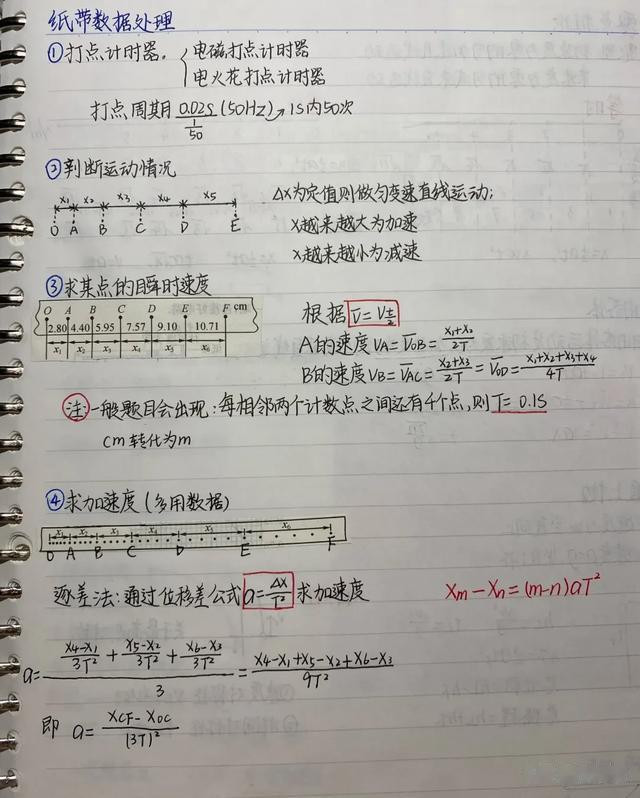 纸带数据处理
①打点计时器。{电磁打点计时器
电火花打点计时器
打点周期 0.02S (50HZ)→1S内50次
1/50
②判断运动情况
x₁ x₂ x₃ x₄ x₅
O A B C D E
Δx为定值则做匀变速直线运动;
x越来越大为加速
x越来越小为减速
③求某点的瞬时速度
O A B C D E F cm
2.80 4.40 5.95 7.57 9.10 10.71
x₁ x₂ x₃ x₄ x₅ x₆
根据 V̅=V t/2
A的速度 VA=V̅OB=(x₁+x₂)/2T
B的速度 VB=V̅AC=(x₂+x₃)/2T=V̅OD=(x₁+x₂+x₃+x₄)/4T
注:一般题目会出现:每相邻两个计数点之间还有4个点,则T=0.1S
cm转化为m
④求加速度(多用数据)
x₁ x₂ x₃ x₄ x₅ x₆
O A B C D E F
逐差法:通过位移差公式 a=Δx/T² 求加速度
Xm-Xn=(m-n)aT²
a=((x₄-x₁)/3T²+(x₅-x₂)/3T²+(x₆-x₃)/3T²)/3=(x₄-x₁+x₅-x₂+x₆-x₃)/9T²
即 a=(XCF-XOC)/(3T)²